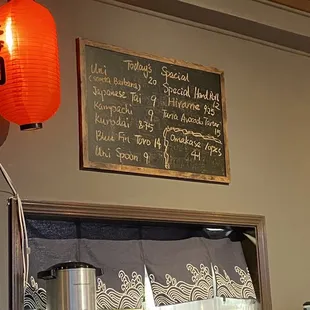 Today's Special
Uni 20
(Santa Barbara)
Japanese Tai 9
Kampachi 9
Kurodai 8.75
Blue Fin Toro 14
Uni Spoon 9
Special Hand Roll
12
Hirame 9.25
Tuna Avocado Tartar
15
Omakase 10pcs
44